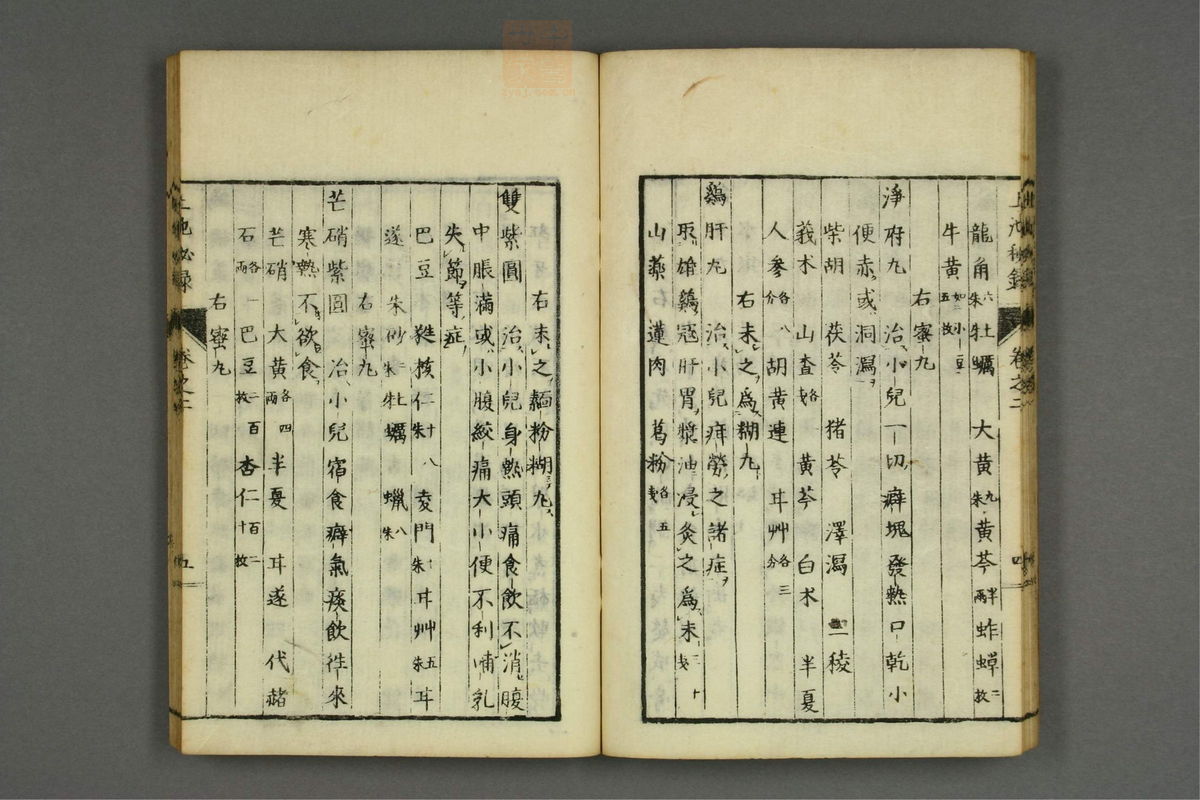 龍角六朱牡蠣 大黄九朱黄芩半兩蚱蟬二枚
牛黄如小豆五枚
右蜜丸
淨府丸 治小兒一切癖塊發熱口乾小
便赤或洞瀉
柴胡 茯苓 猪苓 澤瀉 三稜
莪朮 山査各 黄芩 白朮 半夏
人參各八分 胡黄連 甘艸各三分
右末之爲糊丸
鷄肝丸 治小兒疳勞之諸症
取雄鷄冠肝胃漿油浸灸之爲末三十
山藥 蓮肉 葛粉各五
右末之麵粉糊丸
雙紫圓 治小兒身熱頭痛食飲不消腹
中脹滿或小腹絞痛大小便不利哺乳
失節等症
巴豆 蕤核仁十八朱 麦門 朱 甘艸五朱 甘
遂 朱砂二朱 牡蠣 蝋八朱
右蜜丸
芒硝紫圓 治小兒宿食癖氣痰飲往來
寒熱不欲食
芒硝 大黄各四兩 半夏 甘遂 代赭
石各一兩 巴豆二百枚 杏仁百二十枚
右蜜丸
上池秘録 卷之二 四
上池秘録 卷之二 五